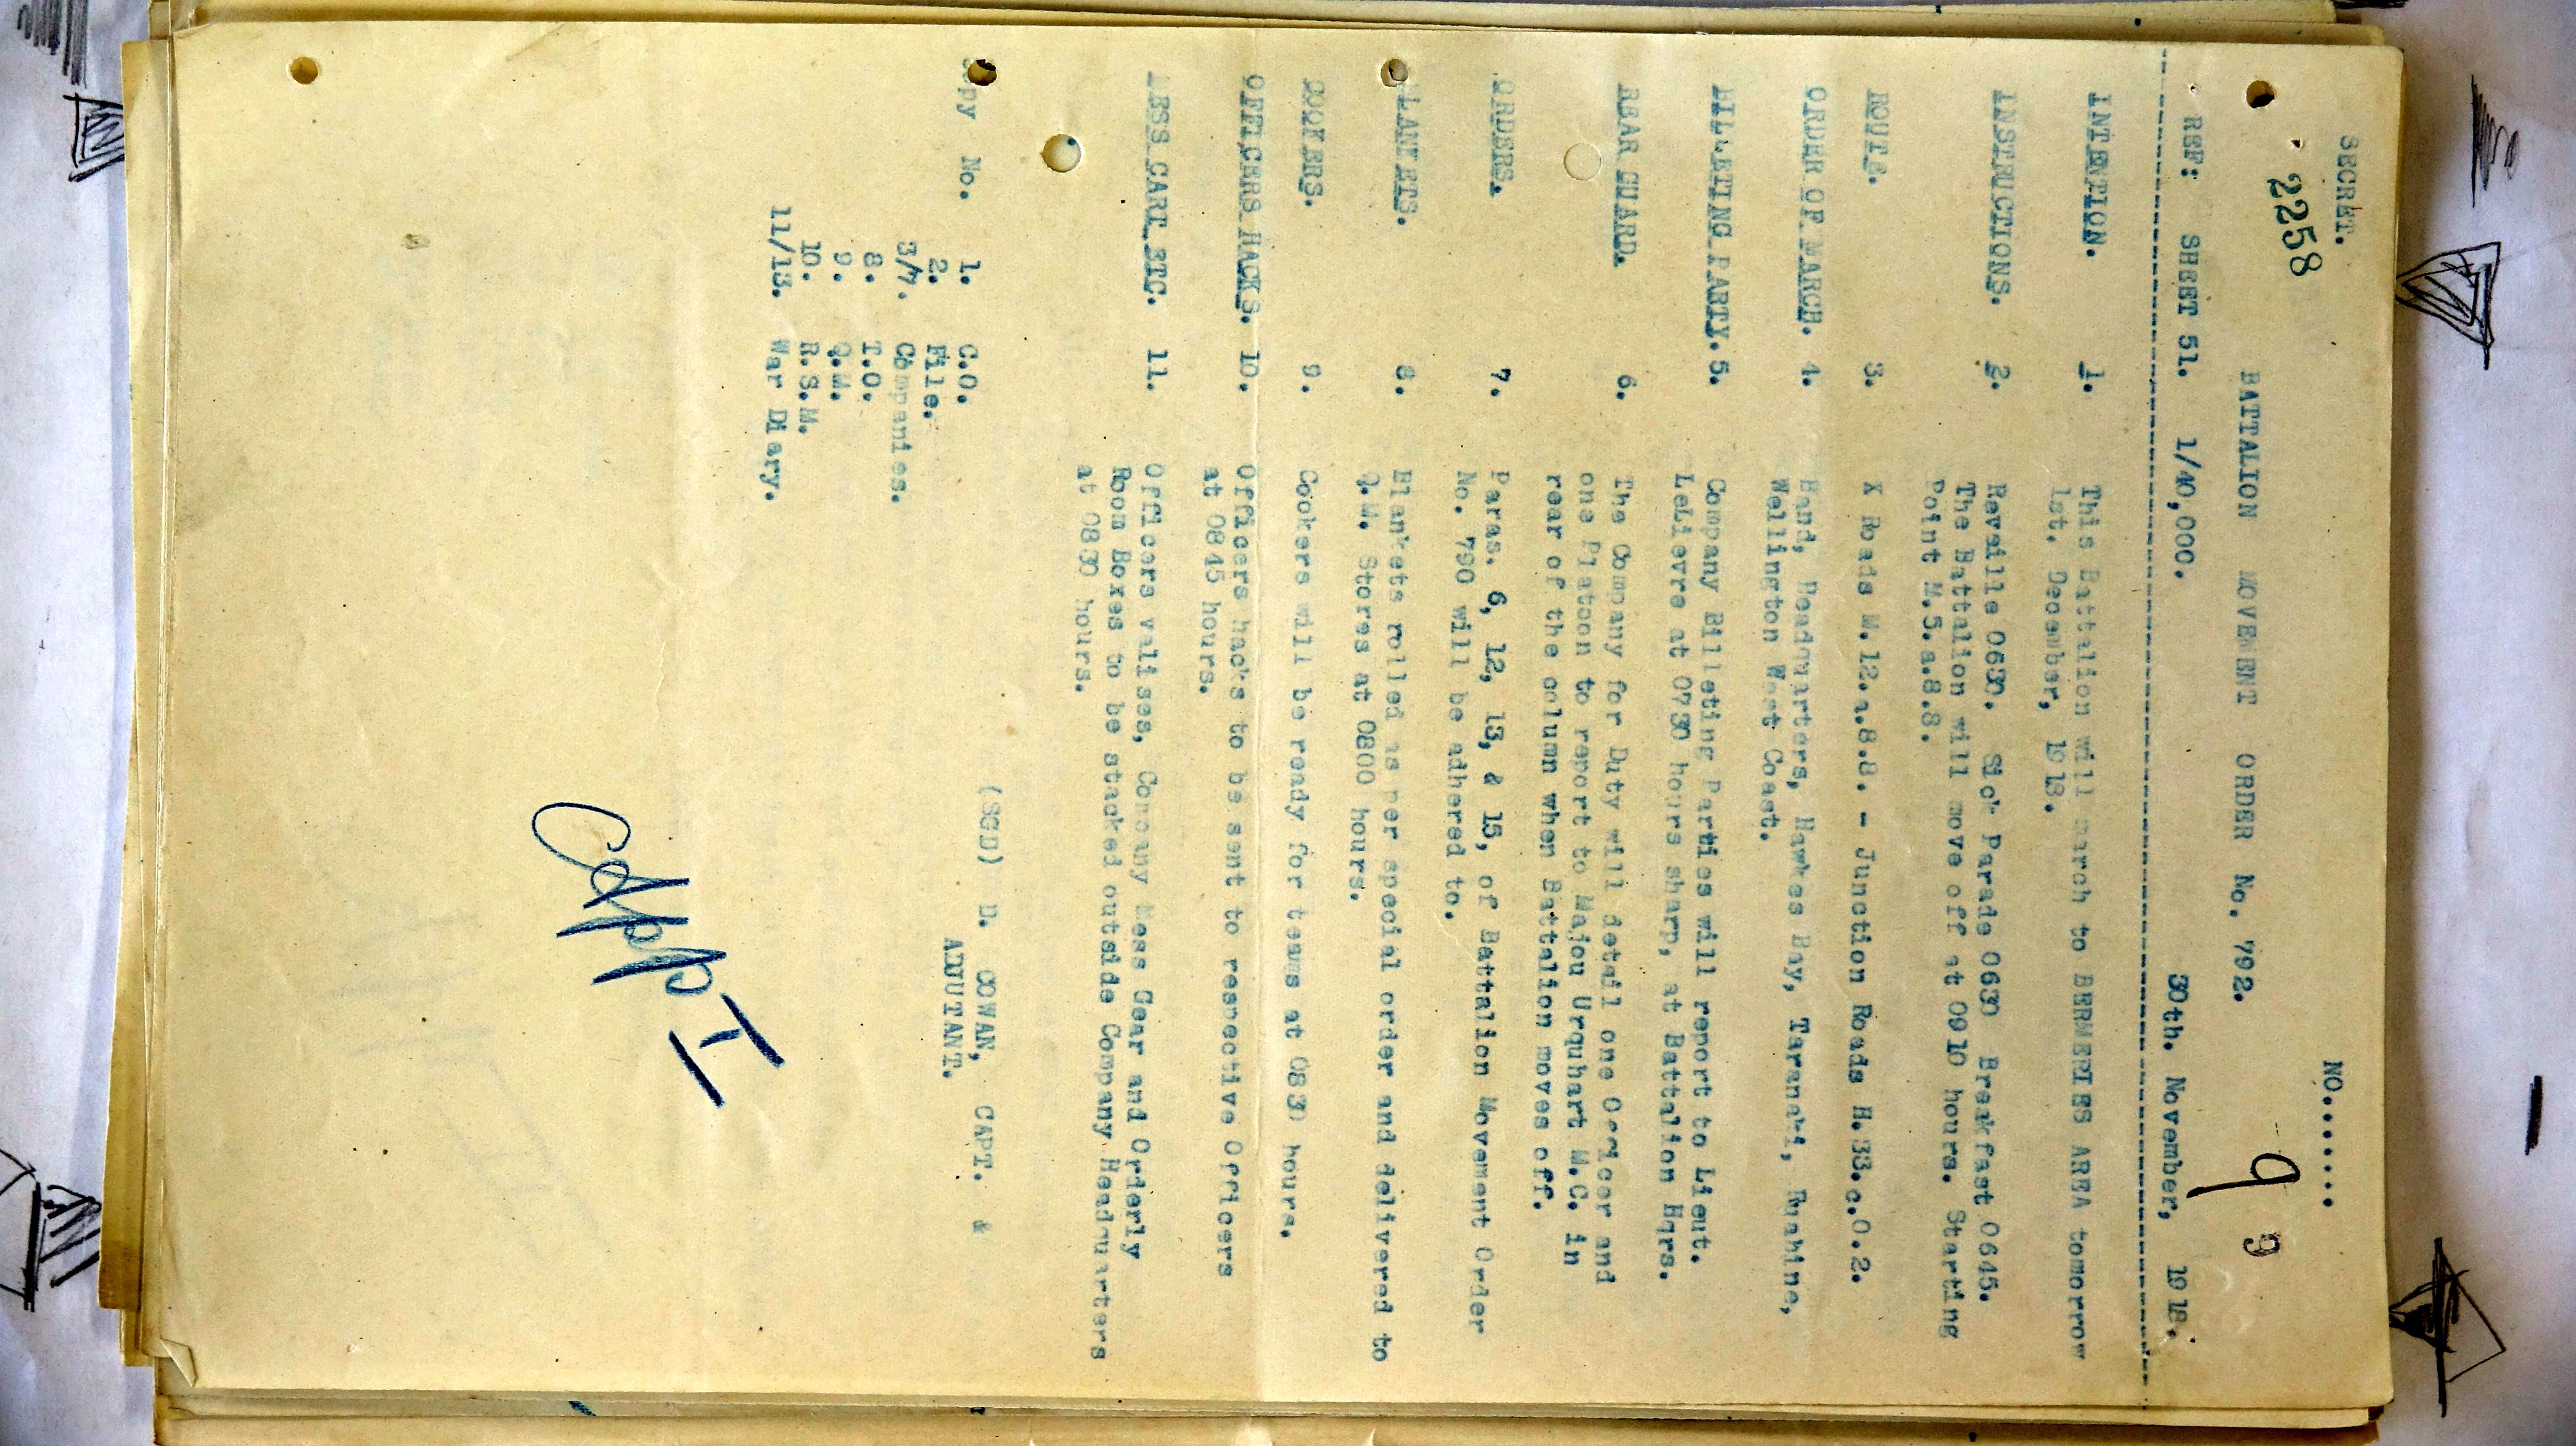 SECRET.
NO.......
2258
9 9
BATTALION MOVEMENT ORDER No. 792.
REF: SHEET 51. 1/40,000. 30th. November, 1918.
INTENTION. 1. This Battalion will march to BERMERIES AREA tomorrow
1st. December, 1918.
INSTRUCTIONS. 2. Reveille 0630. Sick Parade 0630 Breakfast 0645.
The Battalion will move off at 0910 hours. Starting
Point M.5.a.8.8.
ROUTE. 3. X Roads M.12.a.8.8. - Junction Roads H.33.c.0.2.
ORDER OF MARCH. 4. Band, Headquarters, Hawkes Bay, Taranaki, Ruahine,
Wellington West Coast.
BILLETING PARTY. 5. Company Billeting Parties will report to Lieut.
LeLievre at 0730 hours sharp, at Battalion Hqrs.
REAR GUARD. 6. The Company for Duty will detail one Officer and
one Platoon to report to Majou Urquhart M.C. in
rear of the column when Battalion moves off.
ORDERS. 7. Paras. 6, 12, 13, & 15, of Battalion Movement Order
No. 790 will be adhered to.
BLANKETS. 8. Blankets rolled as per special order and delivered to
Q.M. Stores at 0800 hours.
COOKERS. 9. Cookers will be ready for teams at 0830 hours.
OFFICERS HACKS. 10. Officers hacks to be sent to respective Officers
at 0845 hours.
MESS CART ETC. 11. Officers valises, Company Mess Gear and Orderly
Room Boxes to be stacked outside Company Headquarters
at 0830 hours.
(SGD) D. COWAN, CAPT. &
ADUTANT.
Copy No. 1. C.O.
2. File.
3/7. Companies.
8. T.O.
9. Q.M.
10. R.S.M.
11/13. War Diary.
App I